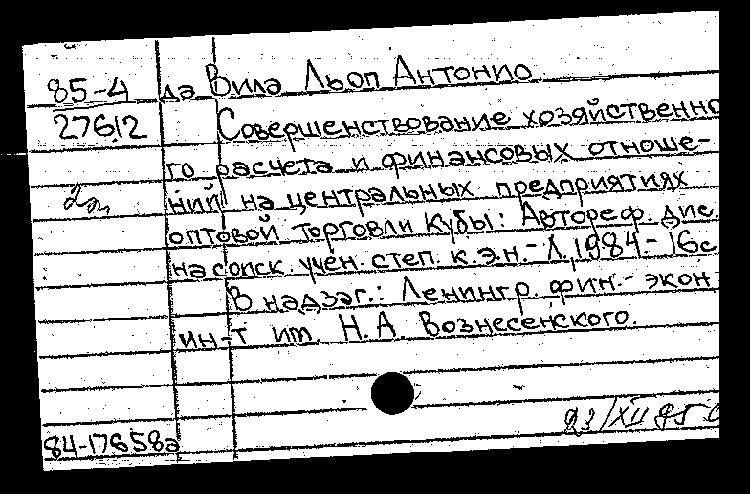 85-4 да Вила Льоп Антонио
27612 Совершенствование хозяйственно
го расчета и финансовых отноше-
2л ний на центральных предприятиях
оптовой торговли Кубы: Автореф. дис.
на соиск. учен. степ. к.э.н.- Л, 1984.- 16с
В надзаг.: Ленингр. фин.- экон
ин-т им. Н.А. Вознесенского.
23/XII 85
84-17658а